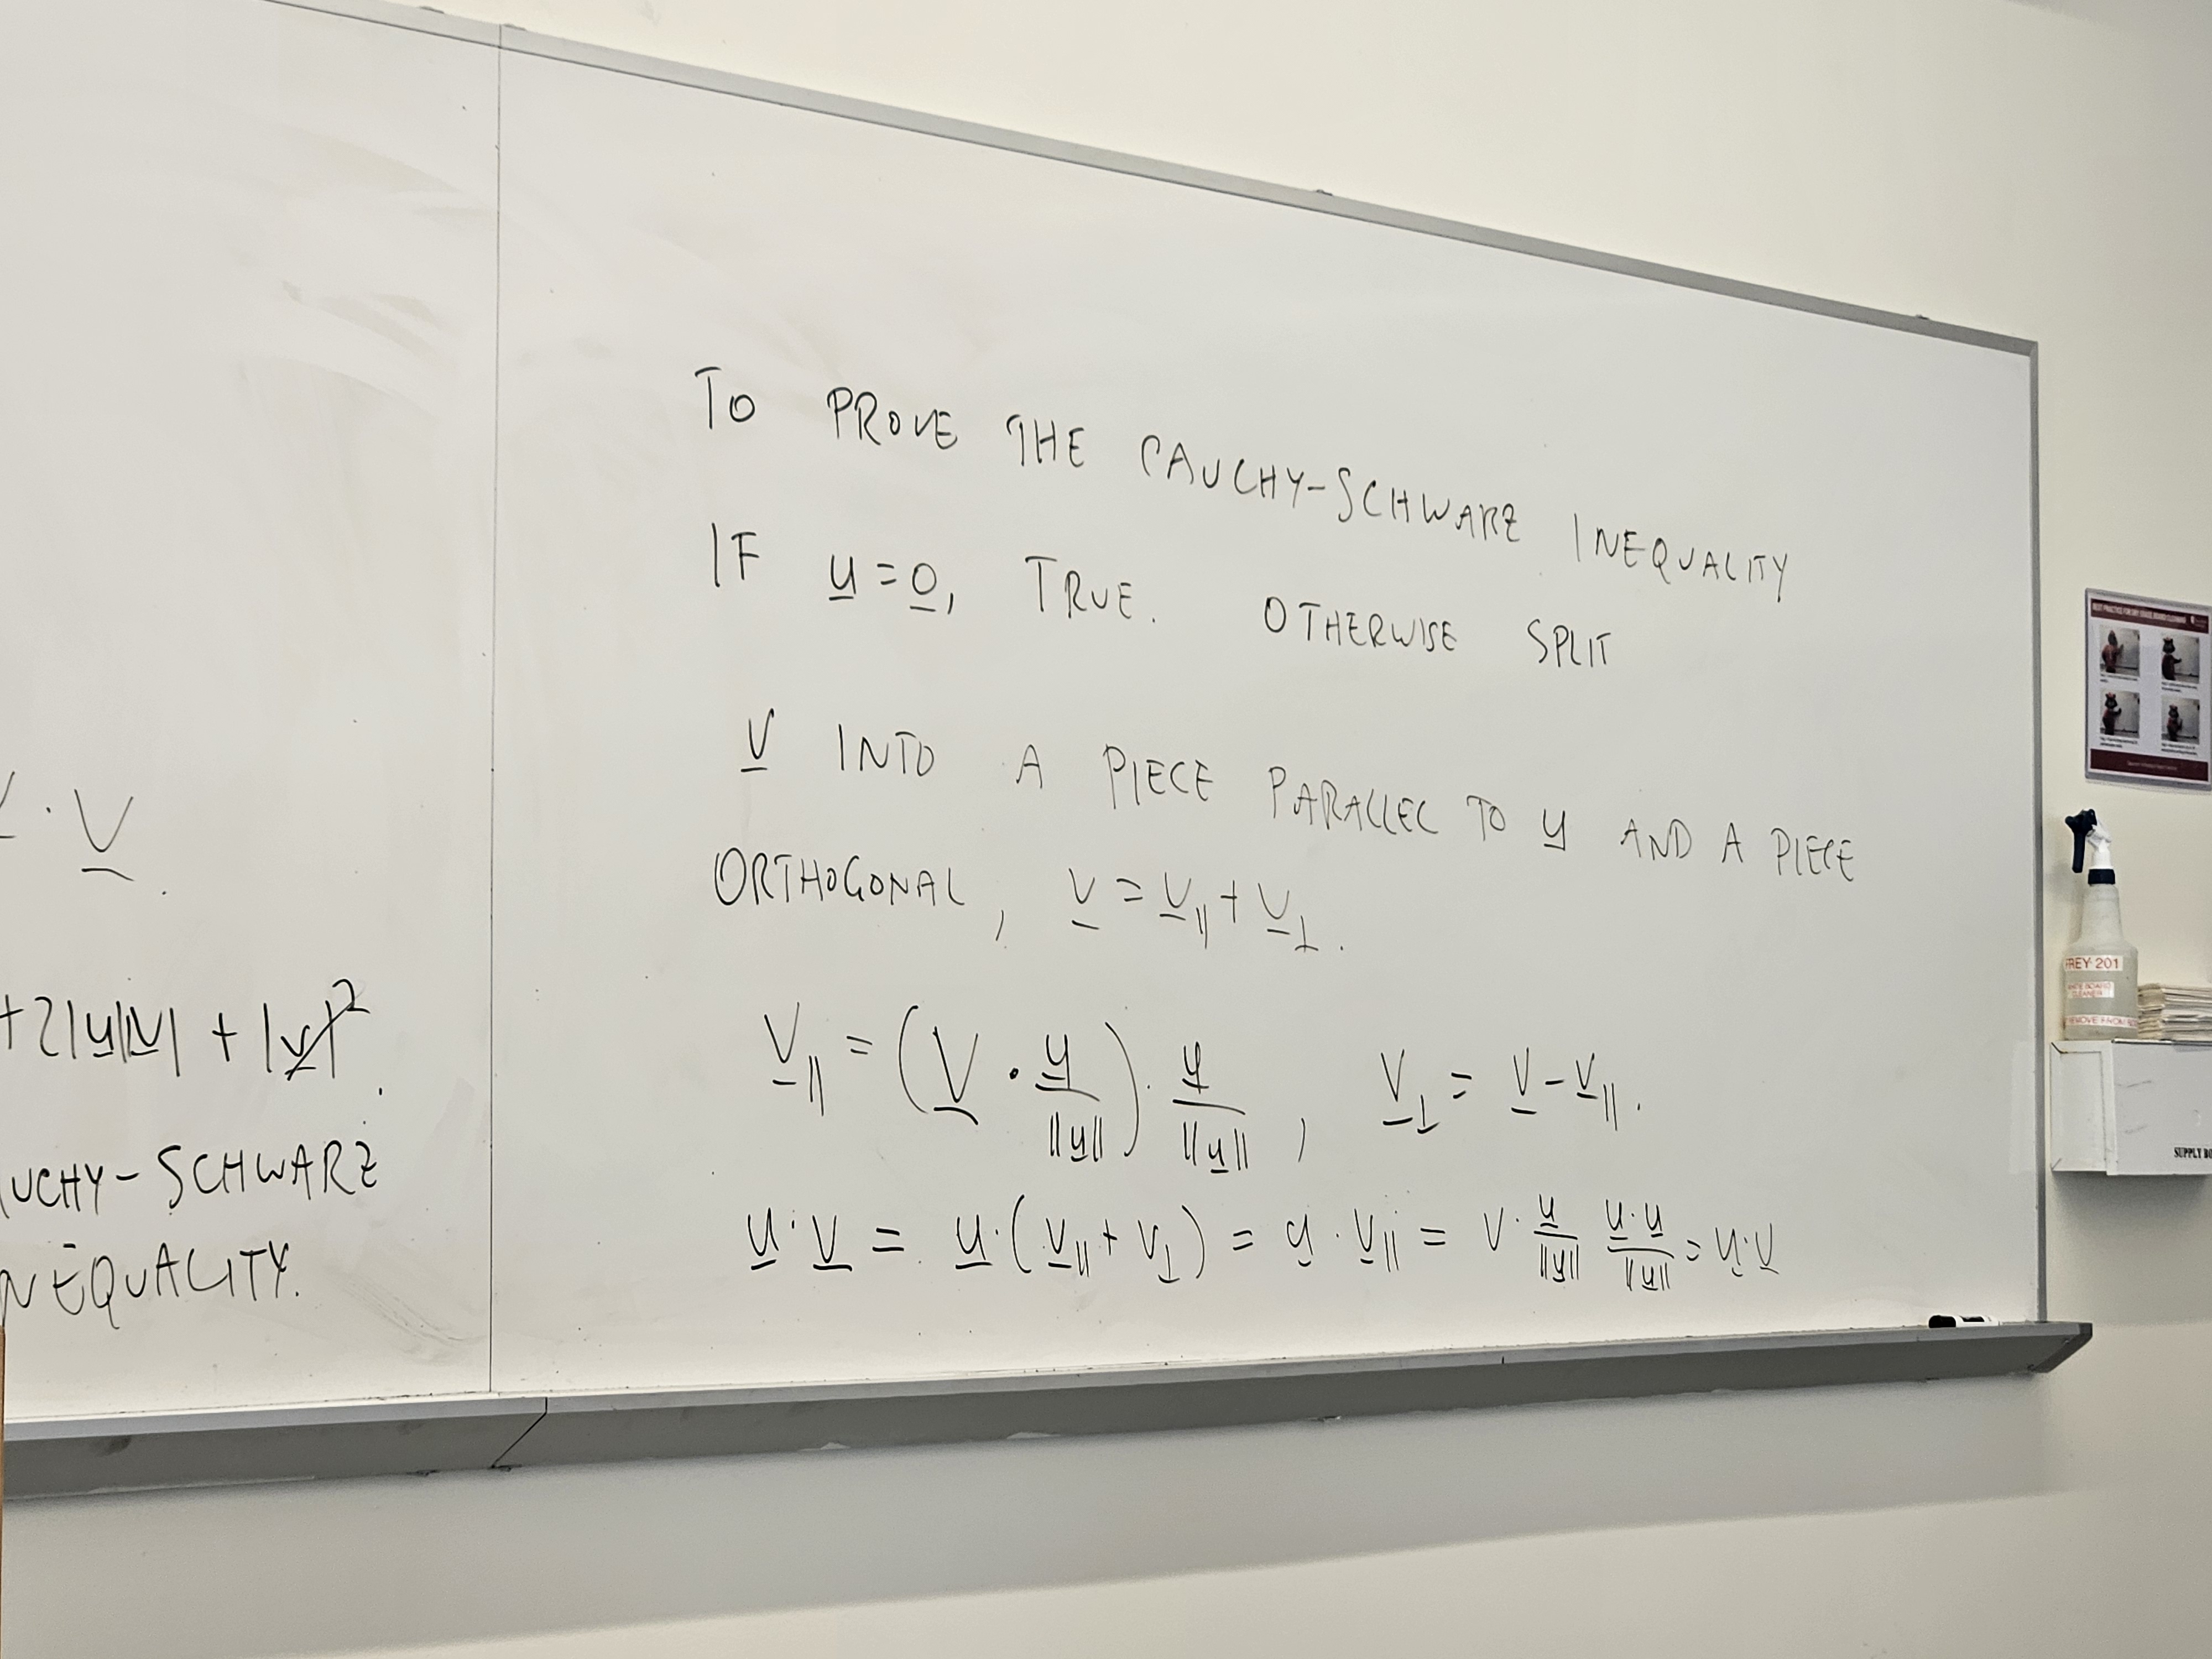 V · V.
+2|u||v| + |v|².
AUCHY-SCHWARZ
NEQUALITY.
TO PROVE THE CAUCHY-SCHWARZ INEQUALITY
IF u = 0, TRUE. OTHERWISE SPLIT
V INTO A PIECE PARALLEL TO u AND A PIECE
ORTHOGONAL, v = v∥ + v⊥.
V∥ = (V · u/||u||) · u/||u||, V⊥ = V - V∥.
u · v = u · (v∥ + v⊥) = u · v∥ = v · u/||u|| u·u/||u|| = u·v
BEST PRACTICE FOR DRY ERASE BOARD CLEANING
FREY 201
SUPPLY BO